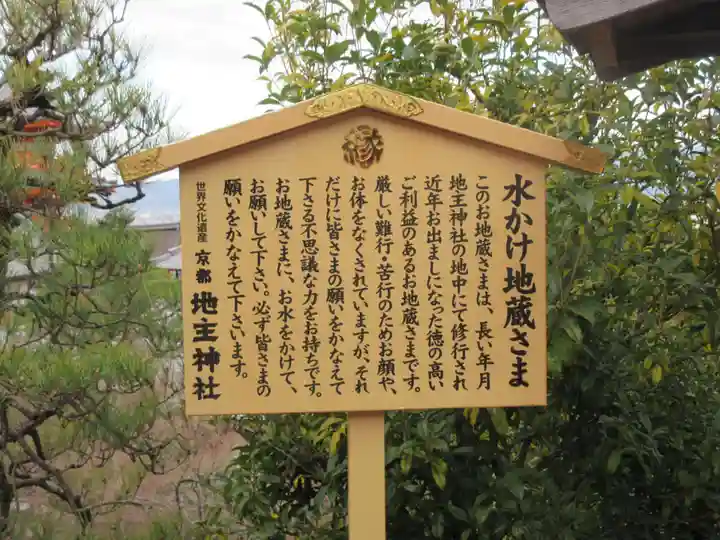 水かけ地蔵さま
このお地蔵さまは、長い年月
地主神社の地中にて修行され
近年お出ましになった徳の高い
ご利益のあるお地蔵さまです。
厳しい難行・苦行のためお顔や、
お体をなくされていますが、それ
だけに皆さまの願いをかなえて
下さる不思議な力をお持ちです。
お地蔵さまに、お水をかけて、
お願いして下さい。必ず皆さまの
願いをかなえて下さいます。
世界文化遺産 京都 地主神社